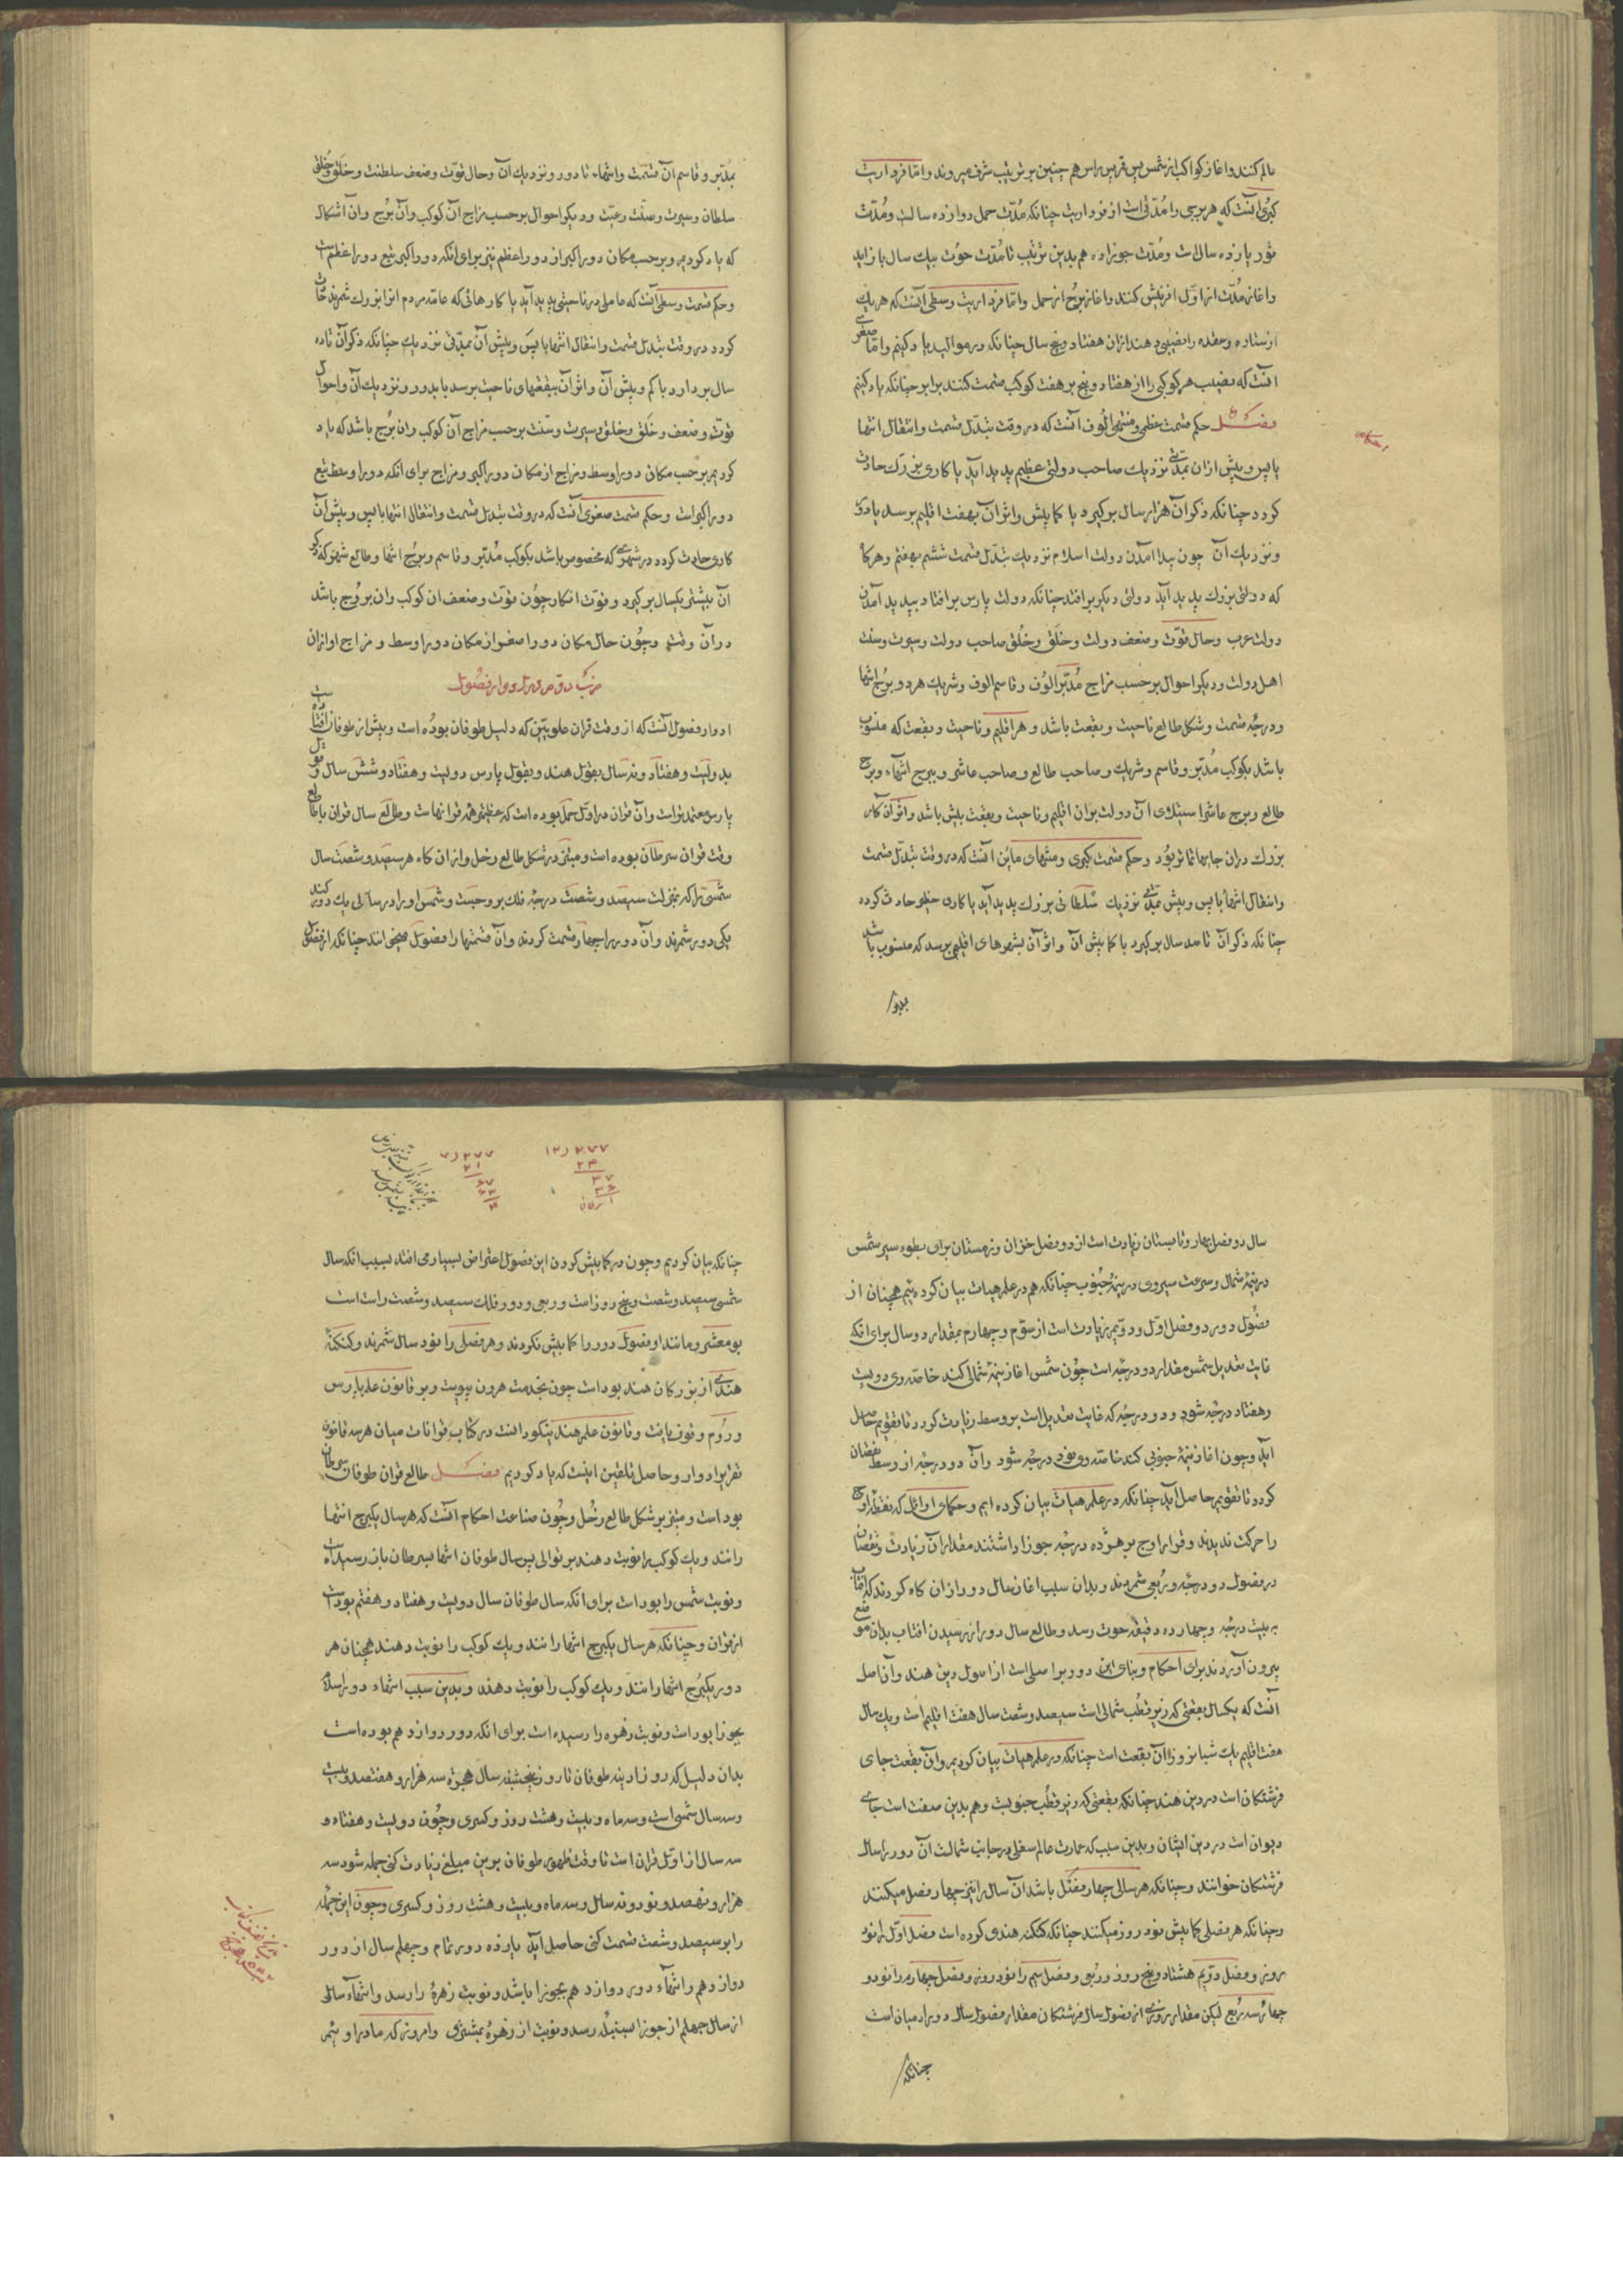 عالم کنند واغاز کواکب از شمس پس قمر پس راس هم چنین بر ترتیب شرف میروند واما فردارات
کبری آنست که هر برجی را مدتی است از فردارت چنانکه مدت حمل دوازده سالست ومدت
ثور یازده سال است ومدت جوزا ده هم بدین ترتیب تا مدت حوت بیک سال باز آید
واغاز مدت از اول افرینش کنند واغاز بروج از حمل واما فردارت وسطی آنست که هر یک
از ستاره وعقده را نصیبی دهند ازان هفتاد وپنج سال چنانکه در موالید یاد کنیم واما صغری
آنست که نصیب هر کوکبی را از هفتاد وپنج بر هفت کوکب قسمت کنند برابر چنانکه یاد کنیم
فصل حکم قسمت عظمی ومنتهی الوف آنست که در وقت تبدل قسمت وانتقال انتها
یا پس وپیش ازان بمدتی نزدیک صاحب دولتی عظیم پدید آید یا کاری بزرگ حادث
کردد چنانکه ذکر آن هزار سال برکیرد یا کمابیش واثر آن بهفت اقلیم برسد یا دور
ونزدیک آن چون پیدا آمدن دولت اسلام نزدیک تبدل قسمت ششم بهفتم وهرکاه
که دولتی بزرک پدید آید دولتی دیکر برافتد چنانکه دولت پارس برافتاد بپدید آمدن
دولت عرب وحال قوت وضعف دولت وخلق وخلق صاحب دولت وسیرت وسنت
اهل دولت ودیکر احوال برحسب مزاج مدبر الوف وقاسم الوف وشریک هر دو وبرج انتها
ودرجه قسمت وشکل طالع ناحیت وبقعت باشد وهر اقلیم وناحیت وبقعت که منسوب
باشد بکوکب مدبر وقاسم وشریک وصاحب طالع وصاحب عاشر وببرج انتهاء وبرج
طالع وبرج عاشر استیلای آن دولت بران اقلیم وناحیت وبقعت بیش باشد واثر آن کار
بزرک دران جایها تمامتر بود وحکم قسمت کبری ومنتهای مایین آنست که در وقت تبدل قسمت
وانتقال انتها یا پس وپیش بمدتی نزدیک سلطانی بزرک پدید آید یا کاری جلیل حادث کردد
چنانکه ذکر آن تا صد سال برکیرد یا کمابیش آن واثر آن بشهرهای اقلیم برسد که منسوب باشد
بمدبر
بمدبر وقاسم آن قسمت وانتهاء تا دور ونزدیک آن وحال قوت وضعف سلطنت وخلق وخلق
سلطان وسیرت وسنت رعیت ودیکر احوال برحسب مزاج آن کوکب وآن برج وان اشکال
که یاد کردیم وبرحسب مکان دور اکبر از دور اعظم نیز برای انکه دور اکبر تبع دور اعظم است
وحکم قسمت وسطی آنست که عاملی در ناحیتی پدید آید یا کارهائی که عامه مردم انرا بزرک شمرند حادث
کردد در وقت تبدل قسمت وانتقال انتها یا پس وپیش آن بمدتی نزدیک چنانکه ذکر آن تا ده
سال بردارد یا کم وبیش آن واثر آن ببقعتهای ناحیت برسد یا بدور ونزدیک آن واحوال
قوت وضعف وخلق وخلق وسیرت وسنت برحسب مزاج آن کوکب وان برج باشد که یاد
کردیم برحسب مکان دور اوسط ومزاج از مکان دور اکبر ومزاج برای انکه دور اوسط تبع
دور اکبر است وحکم قسمت صغری آنست که در وقت تبدل قسمت وانتقال انتها یا پس وپیش آن
کاری حادث کردد در شهری که مخصوص باشد بکوکب مدبر وقاسم وبرج انتها وطالع شهر که ذکر
آن بیشتر یکسال برکیرد وقوت انکار چون قوت وضعف ان کوکب وان بروج باشد
در آن وقت وچون حال مکان دور اصغر از مکان دور اوسط ومزاج او ازان
ادوار فصول آنست که از وقت قران علویین که دلیل طوفان بوده است وپیش از طوفان افتاده است
بدویست وهفتاد ونه سال بقول هند وبقول پارس دویست وهفتاد وشش سال وقول
پارس معتمدتر است وآن قران در اول حمل بوده است که عظیم ترین قرانهاست وطالع سال قران با طالع
وقت قران سرطان بوده است ومبتز در شکل طالع زحل وازان کاه هر سیصد وشصت سال
شمسی را که بمنزلت سیصد وشصت درجه فلک بروجست وشمس او را در سالی یک دور کند
یکی دور شمرند وآن دور را چهار قسمت کردند وآن قسمتها را فصول میخوانند چنانکه از فصول
سال دو فصل بهار وتابستان زیادت است از دو فصل خزان وزمستان برای بطوء سیر شمس
در نیمه شمال وسرعت سیر وی در نیمه جنوب چنانکه هم در علم هیات بیان کرده شد همچنان از
فصول دور دو فصل اول ودویم زیادت است از سوم وچهارم بمقدار دو سال برای انکه
غایت تعدیل شمس مقدار دو درجه است چون شمس اغاز نیمه شمالی کند خاصه وی دویست
وهفتاد درجه شود ودو درجه که غایت تعدیل است بر وسط زیادت کردد تا تقویم حاصل
آید وچون اغاز نیمه جنوبی کند خاصه وی نود درجه شود وآن دو درجه از وسط نقصان
کردد تا تقویم حاصل آید چنانکه در علم هیات بیان کرده ایم وحکمای اوائل که نقطه اوج
را حرکت ندیدند وقرار اوج بر هژده درجه جوزا داشتند مقدار آن زیادت ونقصان
در فصول دو درجه وربعی شمردند وبدان سبب اغاز سال دور ازان کاه کردند که افتاب
به بیست درجه وچهارده دقیقه حوت رسد وطالع سال دور از رسیدن افتاب بدان موضع
بیرون آوردند برای احکام وبنای این دور بر اصلی است از اصول دین هند وآن اصل
آنست که یکسال بقعتی که زیر قطب شمالی است سیصد وشصت سال هفت اقلیم است ویک سال
هفت اقلیم یک شبانروز آن بقعت است چنانکه در علم هیات بیان کردیم وآن بقعت جای
فرشتکان است در دین هند چنانکه بقعتی که زیر قطب جنوبیست وهم بدین صفت است جای
دیوان است در دین ایشان وبدین سبب که عمارت عالم سفلی در جانب شمالست آن دور را سال
فرشتکان خوانند وچنانکه هر سالی چهار فصل باشد آن سال را نیز چهار فصل میکنند
وچنانکه هر فصلی کمابیش نود روز میکنند چنانکه کنکه هندی کرده است فصل اول را نود
روز وفصل دویم هشتاد وپنج روز وربع وفصل سیم را نود روز وفصل چهارم را نود و
چهار سه ربع لیکن مقدار هر روزی از فصول سال فرشتکان مقدار فصول سال دور از میان است
چنانکه
۱۲ ر ۲۷۷
۲۴
۳۷
۳۶
۱
۷ ر ۲۷۷
۲۱
۶۷
۶۳
۴
چنانکه بیان کردیم وچون در کمابیش کردن این فصول اعتراض بسیار می افتد بسبب انکه سال
شمسی سیصد وشصت وپنج روز است وربعی ودور فلک سیصد وشصت راست است
بومعشر ومانند او فصول دور را کمابیش نکردند وهر فصلی را نود سال شمرند وکنکنه
هندی از بزرکان هند بود است چون بخدمت هرون پیوست وبر قانون علم پارس
وروم وقوف یافت وقانون علم هند نیکو دانست در کتاب قرانات میان هر سه قانون
تقریر ادوار وحاصل تلفیق اینست که یاد کردیم فصل طالع قران طوفان سرطان
بود است ومبتز بر شکل طالع زحل وچون صناعت احکام آنست که هر سال یکبرج انتها
رانند ویک کوکب را نوبت دهند بر توالی پس سال طوفان انتها بسرطان باز رسید است
ونوبت شمس را بود است برای انکه سال طوفان سال دویست وهفتاد وهفتم بود است
از قران وچنانکه هر سال یکبرج انتها رانند ویک کوکب را نوبت دهند همچنان هر
دور یکبرج انتها رانند ویک کوکب را نوبت دهند وبدین سبب انتهاء دور اسلام
بجوزا بود است ونوبت زهره را رسیده است برای انکه دور دوازدهم بوده است
بدان دلیل که روز ادینه طوفان تا روز پنجشنبه سال هجرة سه هزار وهفتصد وبیست
وسه سال شمسی است وسه ماه وبیست وهشت روز وکسری وچون دویست وهفتاد و
سه سالی از اول قران است تا وقت ظهور طوفان برین مبلغ زیادت کنی جمله شود سه
هزار ونهصد ونود ونه سال وسه ماه وبیست وهشت روز وکسری وچون این جمله
را بر سیصد وشصت قسمت کنی حاصل آید یازده دور تمام وچهلم سال از دور
دوازدهم وانتهاء دور دوازدهم بجوزا باشد ونوبت زهره را رسد وانتهاء سالی
از سال چهلم از جوزا بسنبله رسد ونوبت از زهره بمشتری وامروز که ما در اوییم